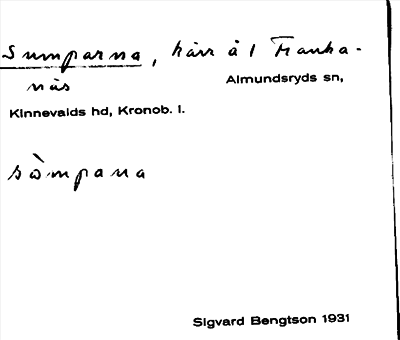 Sumparna, kärr å 1 Franka-
näs
Almundsryds sn,
Kinnevalds hd, Kronob. l.
sòmpana
Sigvard Bengtson 1931